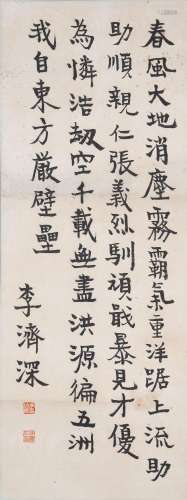 春風大地消塵霧霸氣重洋踞上流助
助順親仁張義烈馴頑戢暴見才優
為憐浩劫空千載無盡洪源徧五洲
我自東方嚴壁壘
李濟深